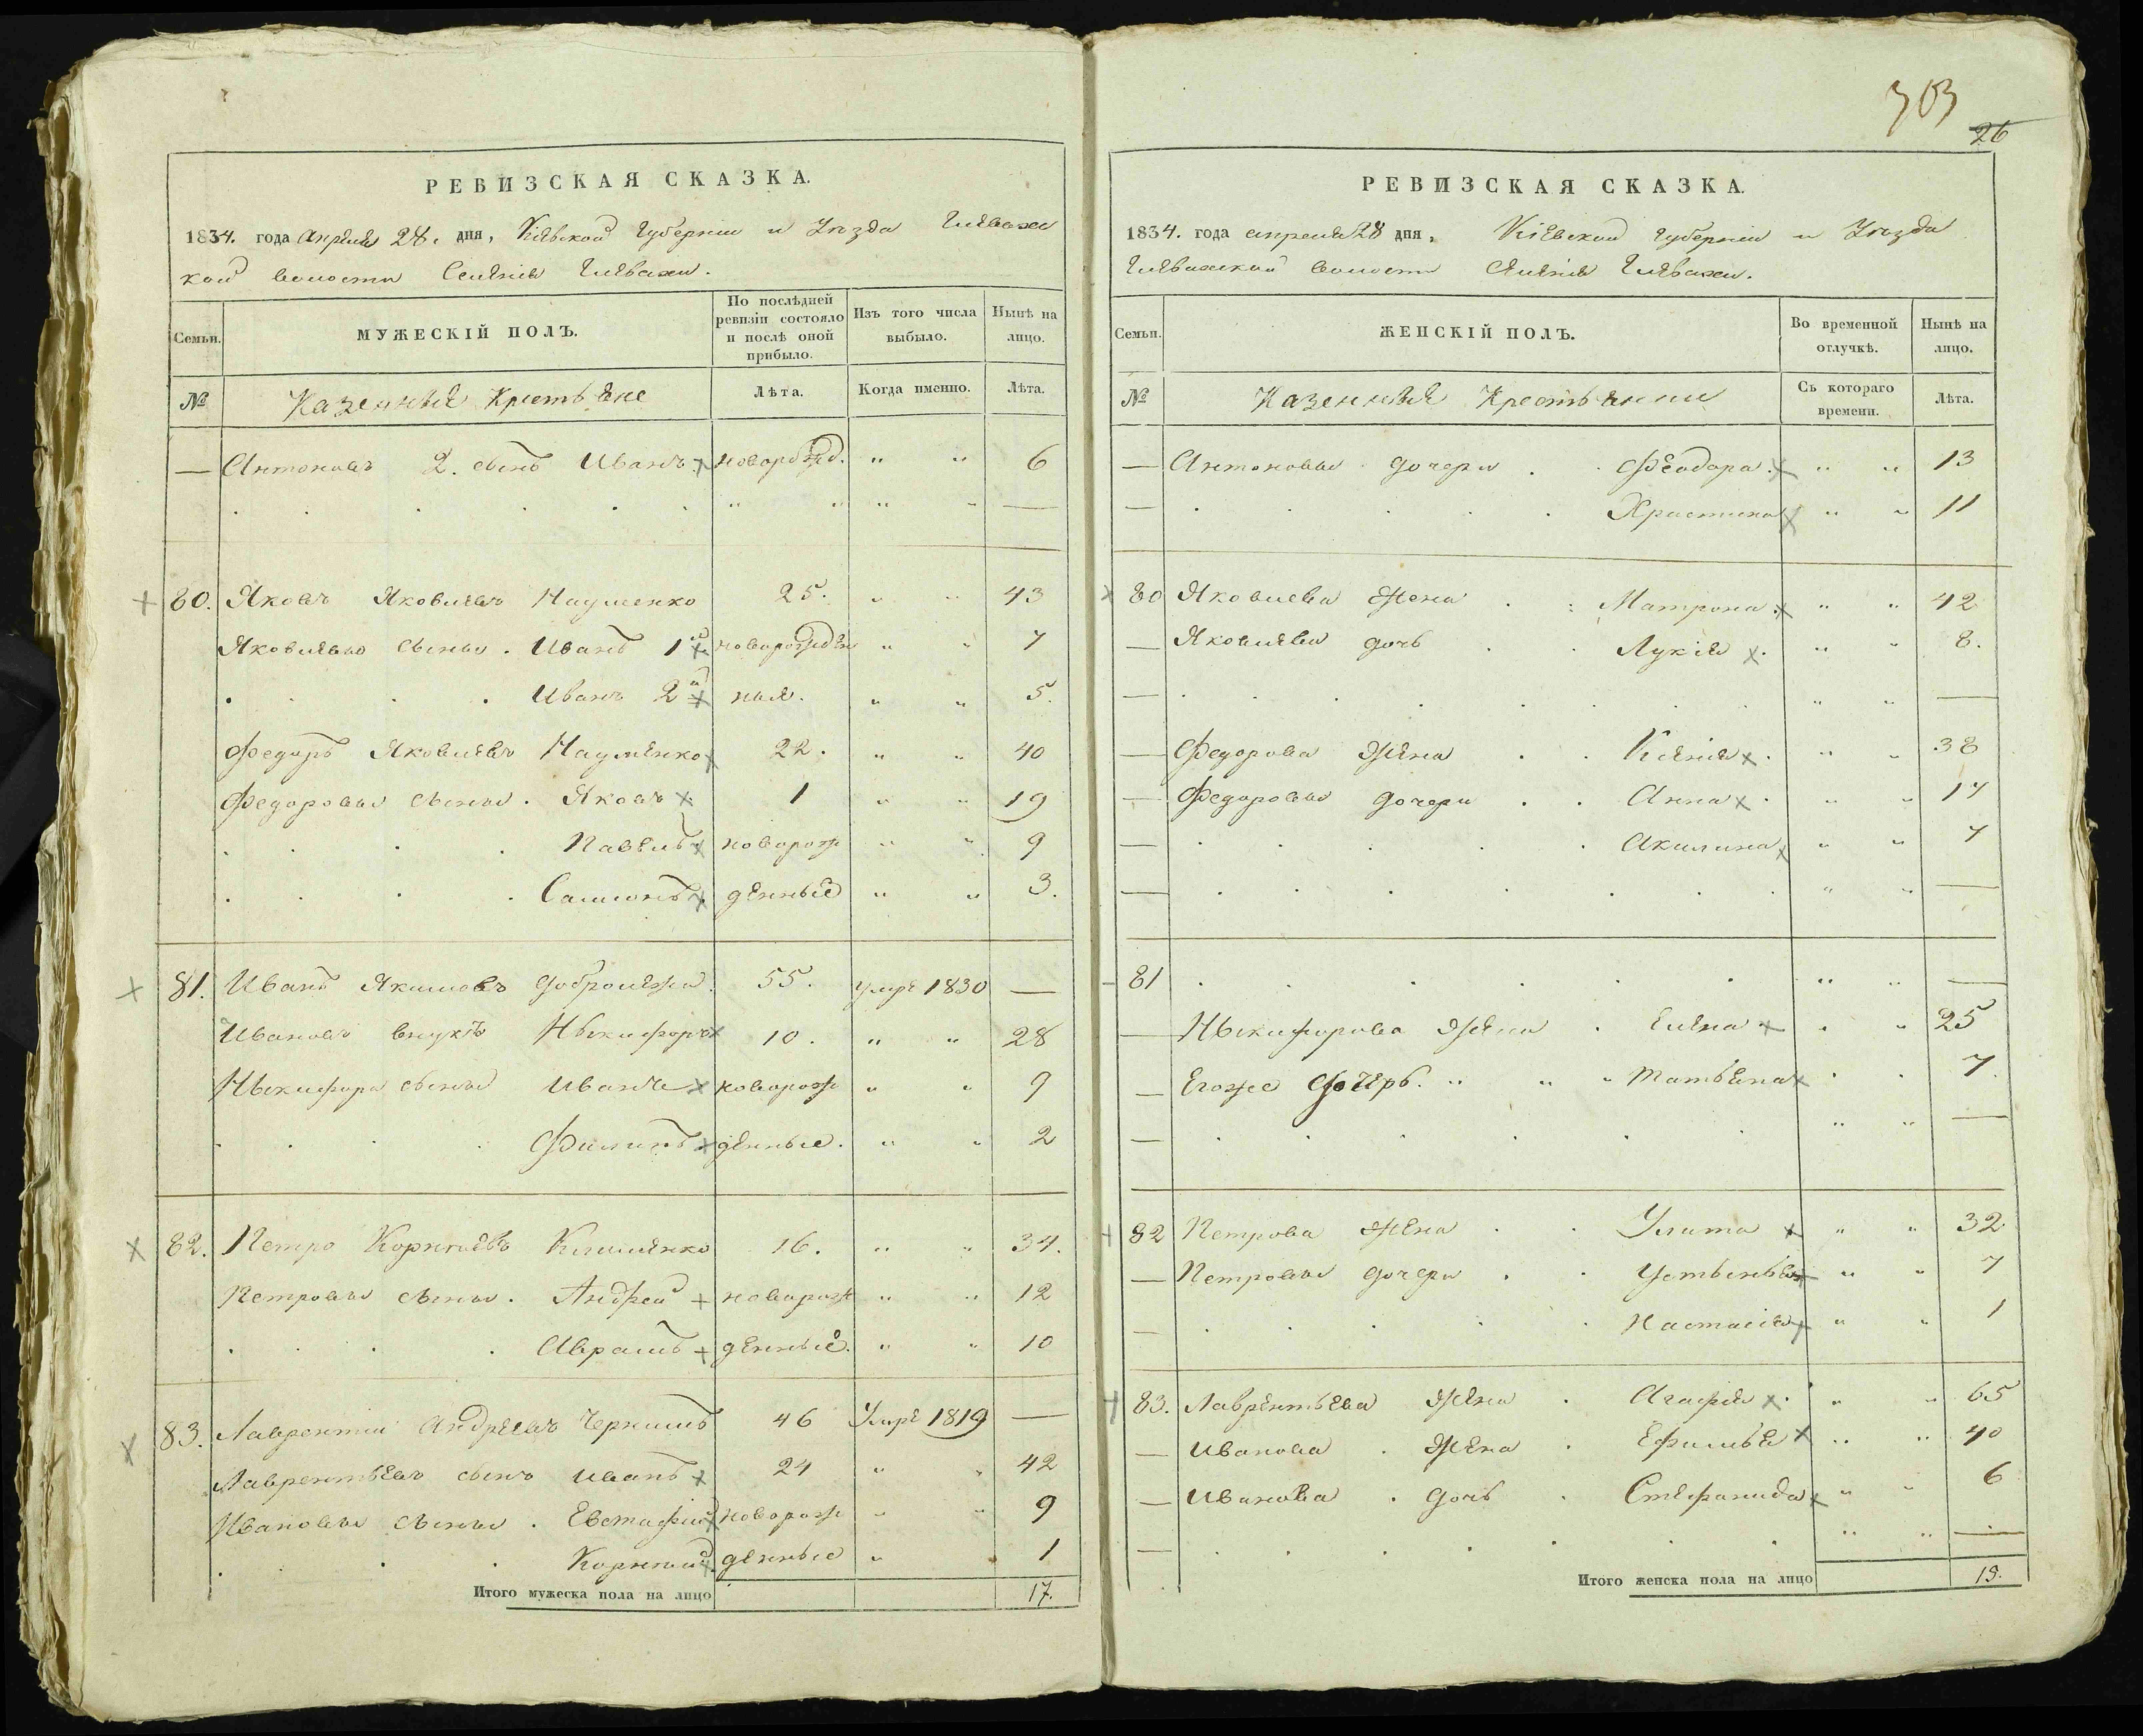 РЕВИЗСКАЯ СКАЗКА.
1834. года апреля 28. дня, Кіевской Губерніи и Уѣзда Глевахс
кой волости Селенія Глевахи.
Семьи.
МУЖЕСКІЙ ПОЛЪ.
По послѣдней ревизіи состояло и послѣ оной прибыло.
Изъ того числа выбыло.
Нынѣ на лицо.
№ Казенные Крестьяне Лѣта. Когда именно. Лѣта.
— Антоновъ 2. сынъ Иванъ новорожд. " " 6
" " " " —
80. Яковъ Яковлевъ Науменко 25. " " 43
Яковлевы сыны. Иванъ 1й новорожден " " 7
Иванъ 2й ныя. " " 5.
Федоръ Яковлевъ Науменко 22. " " 40
Федоровы сыны. Яковъ 1 " " 19
Павелъ новорож " " 9
Самсонъ денные " " 3.
81. Иванъ Якимовъ ДоброLежа 55. умре 1830 —
Ивановъ внукъ Никифоръ 10. " " 28
Никифора сыны Иванъ новорож " " 9
Филипъ денные. " " 2
82. Петро Корнѣевъ Клименко 16. " " 34.
Петровы сыны. Андрей новорож " " 12
Аврамъ денные. " " 10
83. Лаврентій Андреевъ Чернишъ 46 Умре 1819 —
Лаврентьевъ сынъ Иванъ 24 " " 42
Ивановы сыны. Евстафій новорож " " 9
Корнилій денные " " 1
Итого мужеска пола на лицо 17.
303
26
РЕВИЗСКАЯ СКАЗКА.
1834. года апреля 28 дня, Кіевской Губерніи и Уѣзда
Глевахской волости Селенія Глевахи.
Семьи.
ЖЕНСКІЙ ПОЛЪ.
Во временной отлучкѣ.
Нынѣ на лицо.
№ Казенные Крестьянки Съ котораго времени. Лѣта.
— Антоновы дочери Феодора " " 13
— Христина " " 11
80 Яковлева жена Матрона " " 42
— Яковлева дочь Лукія " " 8.
— " " —
— Федорова жена Ксенія " " 38
— Федоровы дочери Анна " " 17
— Акилина " " 7
— " " —
81 " " —
— Никифорова жена Елена " " 25
— Егоже дочерь. " " " Татьяна 7.
— " " —
82 Петрова жена Улита " " 32.
— Петровы дочери Устинья " " 7
— Настасія " " 1
83. Лаврентьева жена Агафія " " 65
— Иванова жена Ефимья " " 40
— Иванова дочь Стефанида " " 6
— " " —
Итого женска пола на лицо 15.